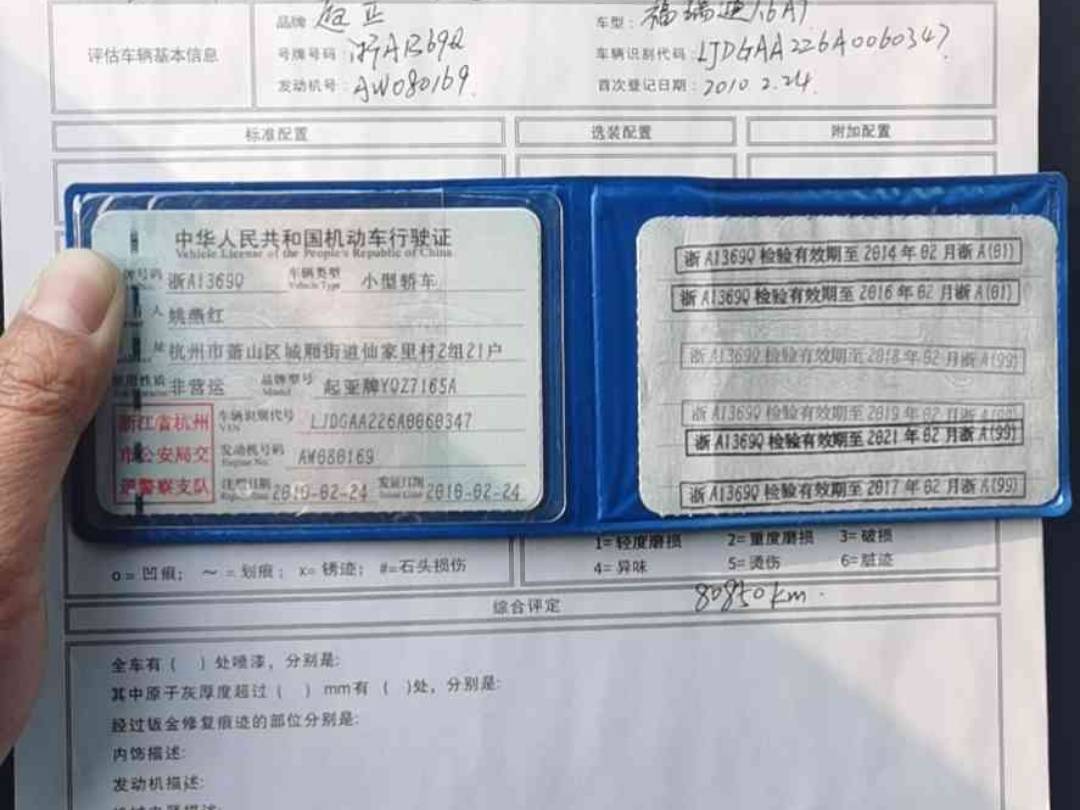 品牌：起亚 车型：福瑞迪1.6AT
评估车辆基本信息 号牌号码：浙A1369Q 车辆识别代码：LJDGAA226A0060347
发动机号：AW080169. 首次登记日期：2010 2.24.
标准配置 选装配置 附加配置
中华人民共和国机动车行驶证
Vehicle License of the People's Republic of China
号码 浙A1369Q 车辆类型 Vehicle Type 小型轿车
人 姚燕红
址 杭州市萧山区城厢街道仙家里村2组21户
使用性质 非营运 品牌型号 Model 起亚牌YQZ7165A
浙江省杭州
市公安局交
通警察支队
车辆识别代号 VIN LJDGAA226A0060347
发动机号码 Engine No. AW080169
注册日期 2010-02-24 发证日期 Issue Date 2010-02-24
浙A1369Q 检验有效期至 2014年02月浙A(01)
浙A1369Q 检验有效期至 2016年02月浙A(01)
浙A1369Q 检验有效期至 2018年02月浙A(99)
浙A1369Q 检验有效期至 2019年02月浙A
浙A1369Q 检验有效期至 2021年02月浙A(99)
浙A1369Q 检验有效期至 2017年02月浙A(99)
1=轻度磨损 2=重度磨损 3=破损
o=凹痕； ～=划痕； x=锈迹； #=石头损伤 4=异味 5=烫伤 6=脏迹
综合评定 80850km.
全车有（ ）处喷漆，分别是:
其中原子灰厚度超过（ ）mm有（ ）处，分别是:
经过钣金修复痕迹的部位分别是:
内饰描述:
发动机描述: